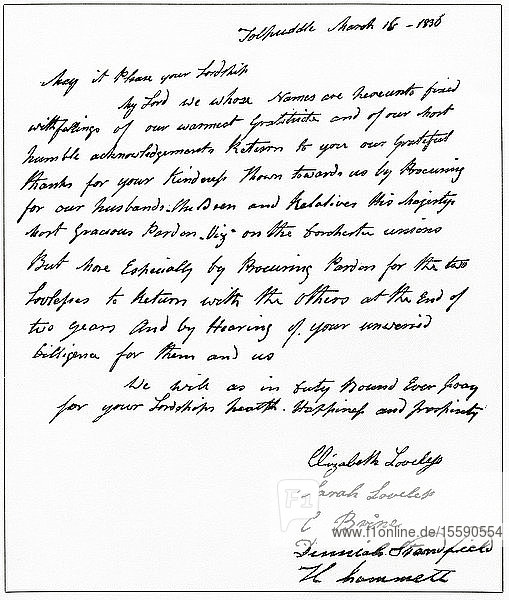 Tolpuddle March 16 - 1836
May it Please your Lordship
My Lord we whose Names are hereunto fixed
with fellings of our warmest Gratitude and of our Most
humble acknowledgements Return to you our Grateful
thanks for your Kindness Shown towards us by Procuring
for our husbands Children and Relatives His Majestys
Most Gracious Pardon Viz on the Dorchester unions
But More Especially by Procuring Pardon for the two
Lovlesses to Return with the others at the End of
two years And by Hearing of your unweried
Diligence for them and us
We will as in Duty Bound Ever Pray
for your Lordships health Happiness and prosperity
Elizabeth Loveless
Sarah Loveless
E Brine
Dinniah Standfield
H Hammett
www.f1online.de #15590554